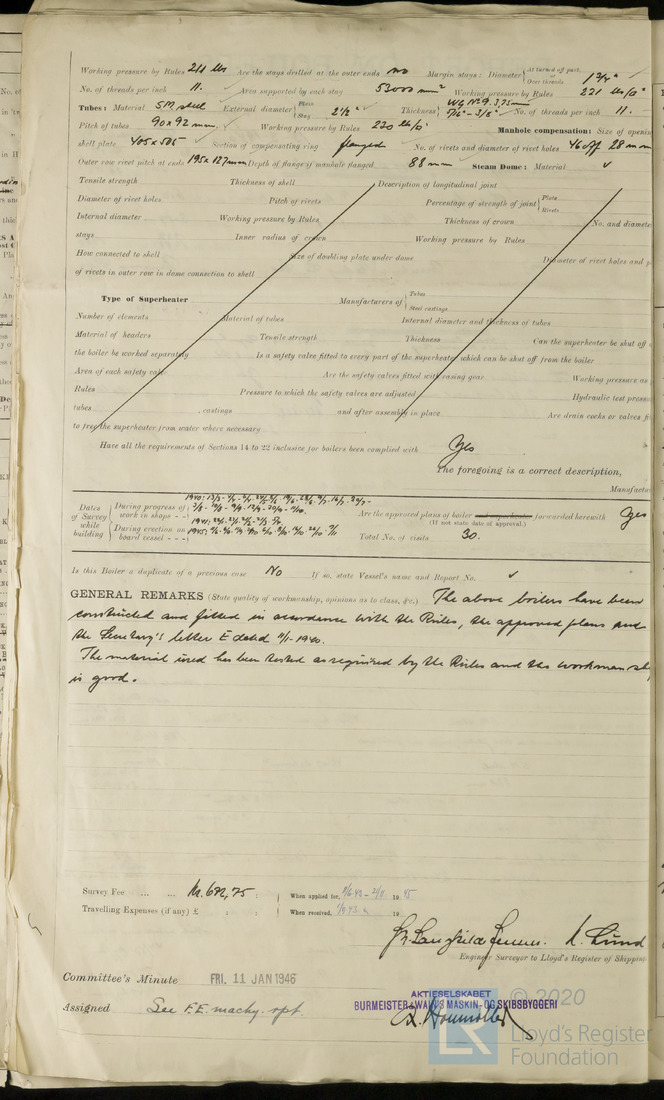 Working pressure by Rules 211 lbs Are the stays drilled at the outer ends no Margin stays: Diameter { At turned off part, or Over threads 1 3/4"
No. of threads per inch 11. Area supported by each stay 53000 mm² Working pressure by Rules 221 lbs/□"
Tubes: Material S.M. steel External diameter { Plain Stay 2 1/2" Thickness { WG No 9. 3.75mm 5/16" - 3/8" No. of threads per inch 11.
Pitch of tubes 90 x 92 mm Working pressure by Rules 220 lb/□" Manhole compensation: Size of openin
shell plate 405 x 505 Section of compensating ring flanged No. of rivets and diameter of rivet holes 46 off 28 mm
Outer row rivet pitch at ends 195 x 127 mm Depth of flange if manhole flanged 88 mm Steam Dome: Material
Tensile strength Thickness of shell Description of longitudinal joint
Diameter of rivet holes Pitch of rivets Percentage of strength of joint { Plate Rivets
Internal diameter Working pressure by Rules Thickness of crown No. and diamete
stays Inner radius of crown Working pressure by Rules
How connected to shell Size of doubling plate under dome Diameter of rivet holes and p
of rivets in outer row in dome connection to shell
Type of Superheater Manufacturers of { Tubes Steel castings
Number of elements Material of tubes Internal diameter and thickness of tubes
Material of headers Tensile strength Thickness Can the superheater be shut off
the boiler be worked separately Is a safety valve fitted to every part of the superheater which can be shut off from the boiler
Area of each safety valve Are the safety valves fitted with easing gear Working pressure as
Rules Pressure to which the safety valves are adjusted Hydraulic test pressu
tubes , castings and after assembly in place Are drain cocks or valves fi
to free the superheater from water where necessary
Have all the requirements of Sections 14 to 22 inclusive for boilers been complied with Yes
The foregoing is a correct description,
Manufactu
Dates of Survey while building
During progress of work in shops - - 1940:
1941:
During erection on board vessel - - - 1945:
Are the approved plans of boiler and superheater forwarded herewith Yes
(If not state date of approval.)
Total No. of visits 30.
Is this Boiler a duplicate of a previous case No If so, state Vessel's name and Report No.
GENERAL REMARKS (State quality of workmanship, opinions as to class, &c.) The above boilers have been
constructed and fitted in accordance with the Rules, the approved plans and
the Secretary's letter E dated 11/1-1940.
The material used has been tested as required by the Rules and the workmanshi
is good.
Survey Fee ... ... Kr. 682,75 : When applied for, 19 45
Travelling Expenses (if any) £ : : When received, 19
L. Lund
Engineer Surveyor to Lloyd's Register of Shippin
Committee's Minute FRI. 11 JAN 1946
AKTIESELSKABET
BURMEISTER & WAIN'S MASKIN- OG SKIBSBYGGERI
Assigned See F.E. machy. rpt.
© 2020
LR
Lloyd's Register
Foundation